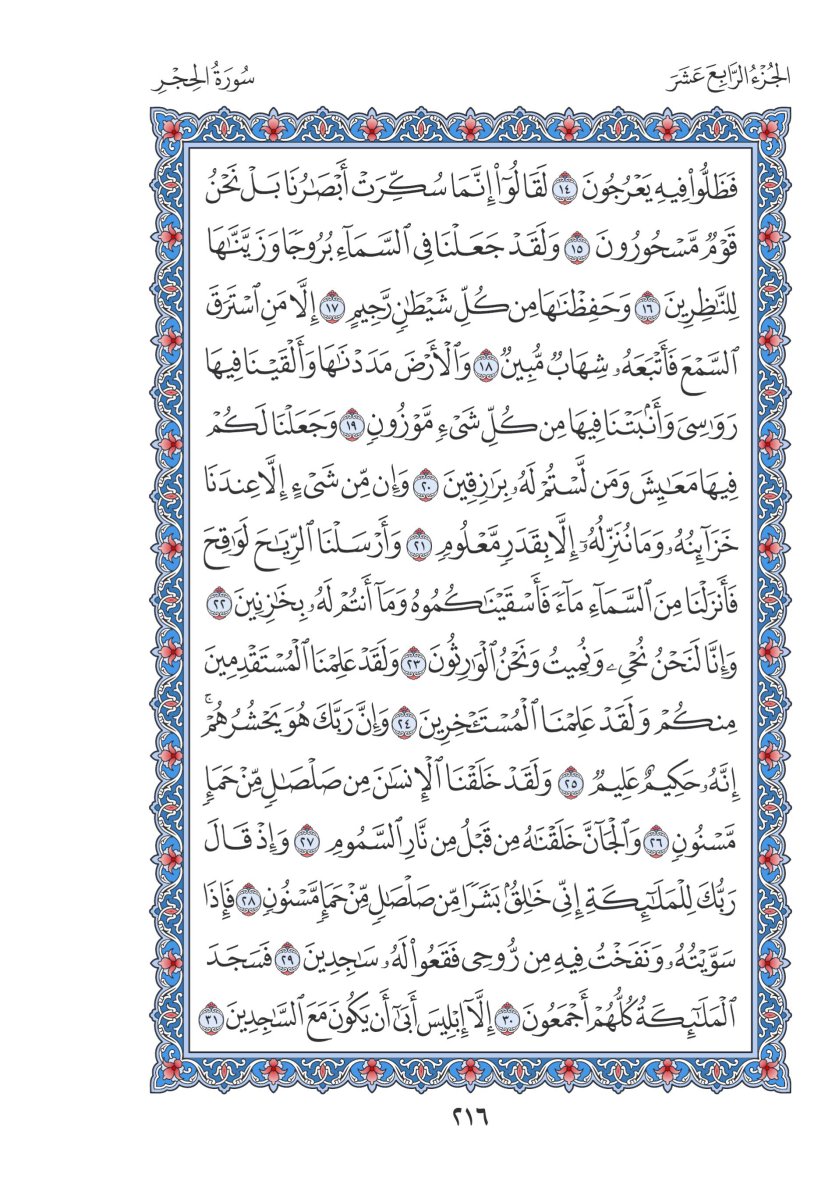 الجُزْءُ الرَّابِعَ عَشَرَ
سُورَةُ الحِجْرِ
فَظَلُّوا۟ فِيهِ يَعْرُجُونَ ١٤ لَقَالُوٓا۟ إِنَّمَا سُكِّرَتْ أَبْصَٰرُنَا بَلْ نَحْنُ
قَوْمٌ مَّسْحُورُونَ ١٥ وَلَقَدْ جَعَلْنَا فِى ٱلسَّمَآءِ بُرُوجًا وَزَيَّنَّٰهَا
لِلنَّٰظِرِينَ ١٦ وَحَفِظْنَٰهَا مِن كُلِّ شَيْطَٰنٍ رَّجِيمٍ ١٧ إِلَّا مَنِ ٱسْتَرَقَ
ٱلسَّمْعَ فَأَتْبَعَهُۥ شِهَابٌ مُّبِينٌ ١٨ وَٱلْأَرْضَ مَدَدْنَٰهَا وَأَلْقَيْنَا فِيهَا
رَوَٰسِىَ وَأَنۢبَتْنَا فِيهَا مِن كُلِّ شَىْءٍ مَّوْزُونٍ ١٩ وَجَعَلْنَا لَكُمْ
فِيهَا مَعَٰيِشَ وَمَن لَّسْتُمْ لَهُۥ بِرَٰزِقِينَ ٢٠ وَإِن مِّن شَىْءٍ إِلَّا عِندَنَا
خَزَآئِنُهُۥ وَمَا نُنَزِّلُهُۥٓ إِلَّا بِقَدَرٍ مَّعْلُومٍ ٢١ وَأَرْسَلْنَا ٱلرِّيَٰحَ لَوَٰقِحَ
فَأَنزَلْنَا مِنَ ٱلسَّمَآءِ مَآءً فَأَسْقَيْنَٰكُمُوهُ وَمَآ أَنتُمْ لَهُۥ بِخَٰزِنِينَ ٢٢
وَإِنَّا لَنَحْنُ نُحْىِۦ وَنُمِيتُ وَنَحْنُ ٱلْوَٰرِثُونَ ٢٣ وَلَقَدْ عَلِمْنَا ٱلْمُسْتَقْدِمِينَ
مِنكُمْ وَلَقَدْ عَلِمْنَا ٱلْمُسْتَـْٔخِرِينَ ٢٤ وَإِنَّ رَبَّكَ هُوَ يَحْشُرُهُمْ ۚ
إِنَّهُۥ حَكِيمٌ عَلِيمٌ ٢٥ وَلَقَدْ خَلَقْنَا ٱلْإِنسَٰنَ مِن صَلْصَٰلٍ مِّنْ حَمَإٍ
مَّسْنُونٍ ٢٦ وَٱلْجَآنَّ خَلَقْنَٰهُ مِن قَبْلُ مِن نَّارِ ٱلسَّمُومِ ٢٧ وَإِذْ قَالَ
رَبُّكَ لِلْمَلَٰٓئِكَةِ إِنِّى خَٰلِقٌۢ بَشَرًا مِّن صَلْصَٰلٍ مِّنْ حَمَإٍ مَّسْنُونٍ ٢٨ فَإِذَا
سَوَّيْتُهُۥ وَنَفَخْتُ فِيهِ مِن رُّوحِى فَقَعُوا۟ لَهُۥ سَٰجِدِينَ ٢٩ فَسَجَدَ
ٱلْمَلَٰٓئِكَةُ كُلُّهُمْ أَجْمَعُونَ ٣٠ إِلَّآ إِبْلِيسَ أَبَىٰٓ أَن يَكُونَ مَعَ ٱلسَّٰجِدِينَ ٣١
٢١٦